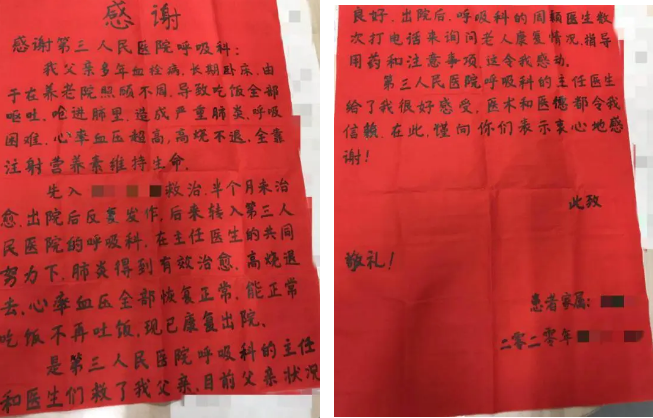 感谢
感谢第三人民医院呼吸科：
我父亲多年血栓病，长期卧床，由
于在养老院照顾不周，导致吃饭全部
呕吐，呛进肺里，造成严重肺炎，呼吸
困难，心率血压超高，高烧不退，全靠
注射营养素维持生命。
先入 救治，半个月未治
愈，出院后反复发作，后来转入第三人
民医院的呼吸科，在主任医生的共同
努力下，肺炎得到有效治愈，高烧退
去，心率血压全部恢复正常，能正常
吃饭不再吐饭，现已康复出院。
是第三人民医院呼吸科的主任
和医生们救了我父亲，目前父亲状况
良好，出院后，呼吸科的周颖医生数
次打电话来询问老人康复情况，指导
用药和注意事项，这令我感动。
第三人民医院呼吸科的主任医生
给了我很好感受，医术和医德都令我
信赖，在此，谨向你们表示衷心地感
谢！
此致
敬礼！
患者家属：
二零二零年